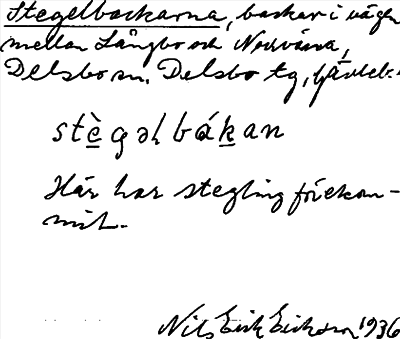 Stegelbackarna, backar i vägen
mellan Långbo och Norrväna,
Delsbo sn. Delsbo tg, Gävleb.
stè̲gəlbák̲an
Här har stegling förekom-
mit.
Nils Erik Eriksson 1936